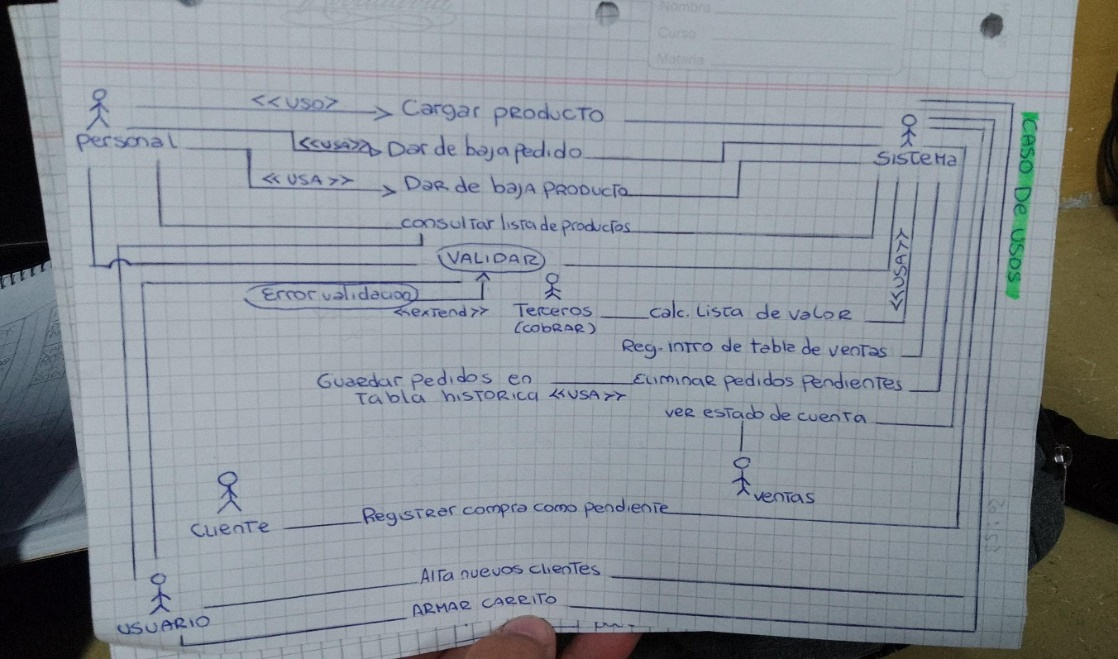 Nombre
Curso
Materia
CASO DE USOS
<<USO>
Cargar PRODUCTO
Personal
Sistema
<<USA>>
Dar de baja pedido
<< USA >>
DAR de bajA PRODUCTO
consultar lista de productos
VALIDAR
<<USA>>
Error validacion
<<extend>>
Terceros
(COBRAR)
calc. Lista de valor
Reg. intro de table de ventas
Guardar pedidos en
Tabla historica <<USA>>
Eliminar pedidos pendientes
ver estado de cuenta
ventas
Cliente
Registrer compra como pendiente
Alta nuevos clientes
USUARIO
ARMAR CARRITO